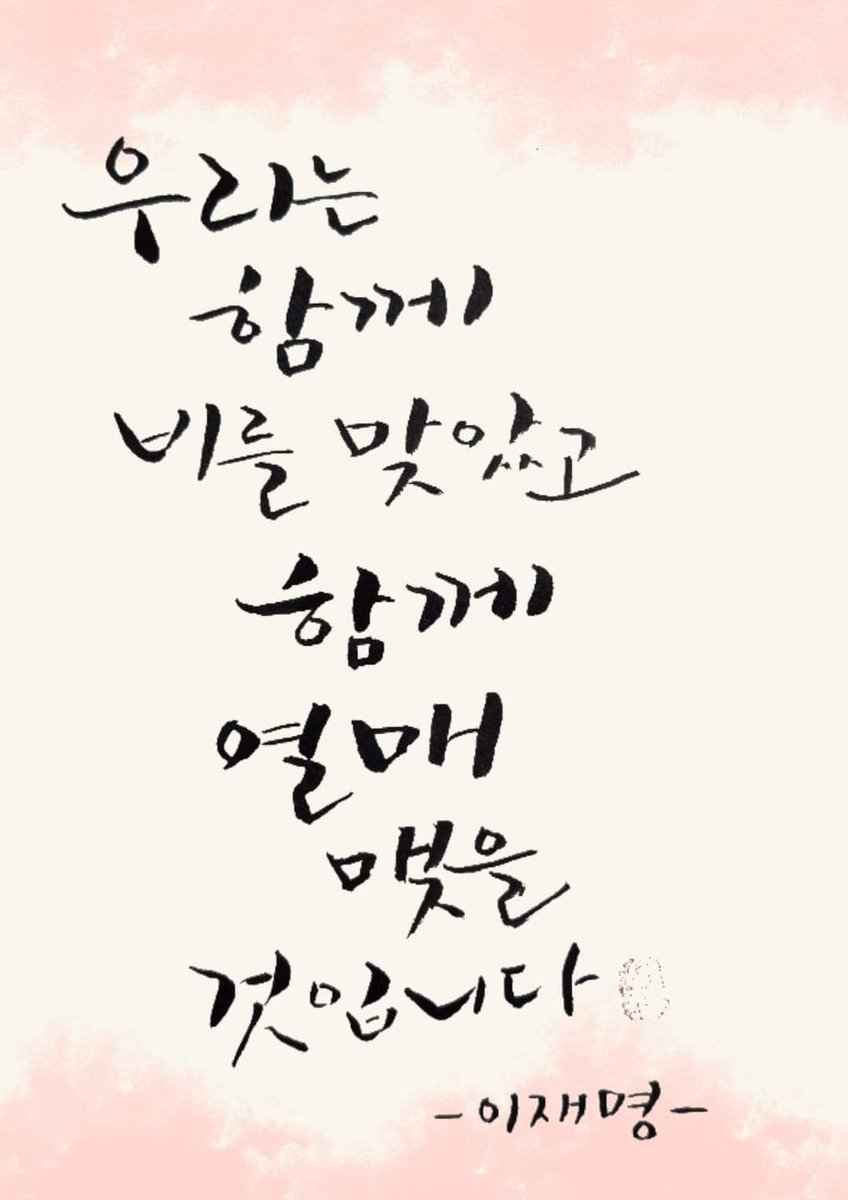 우리는
함께
비를 맞았고
함께
열매
맺을
것입니다
-이재명-